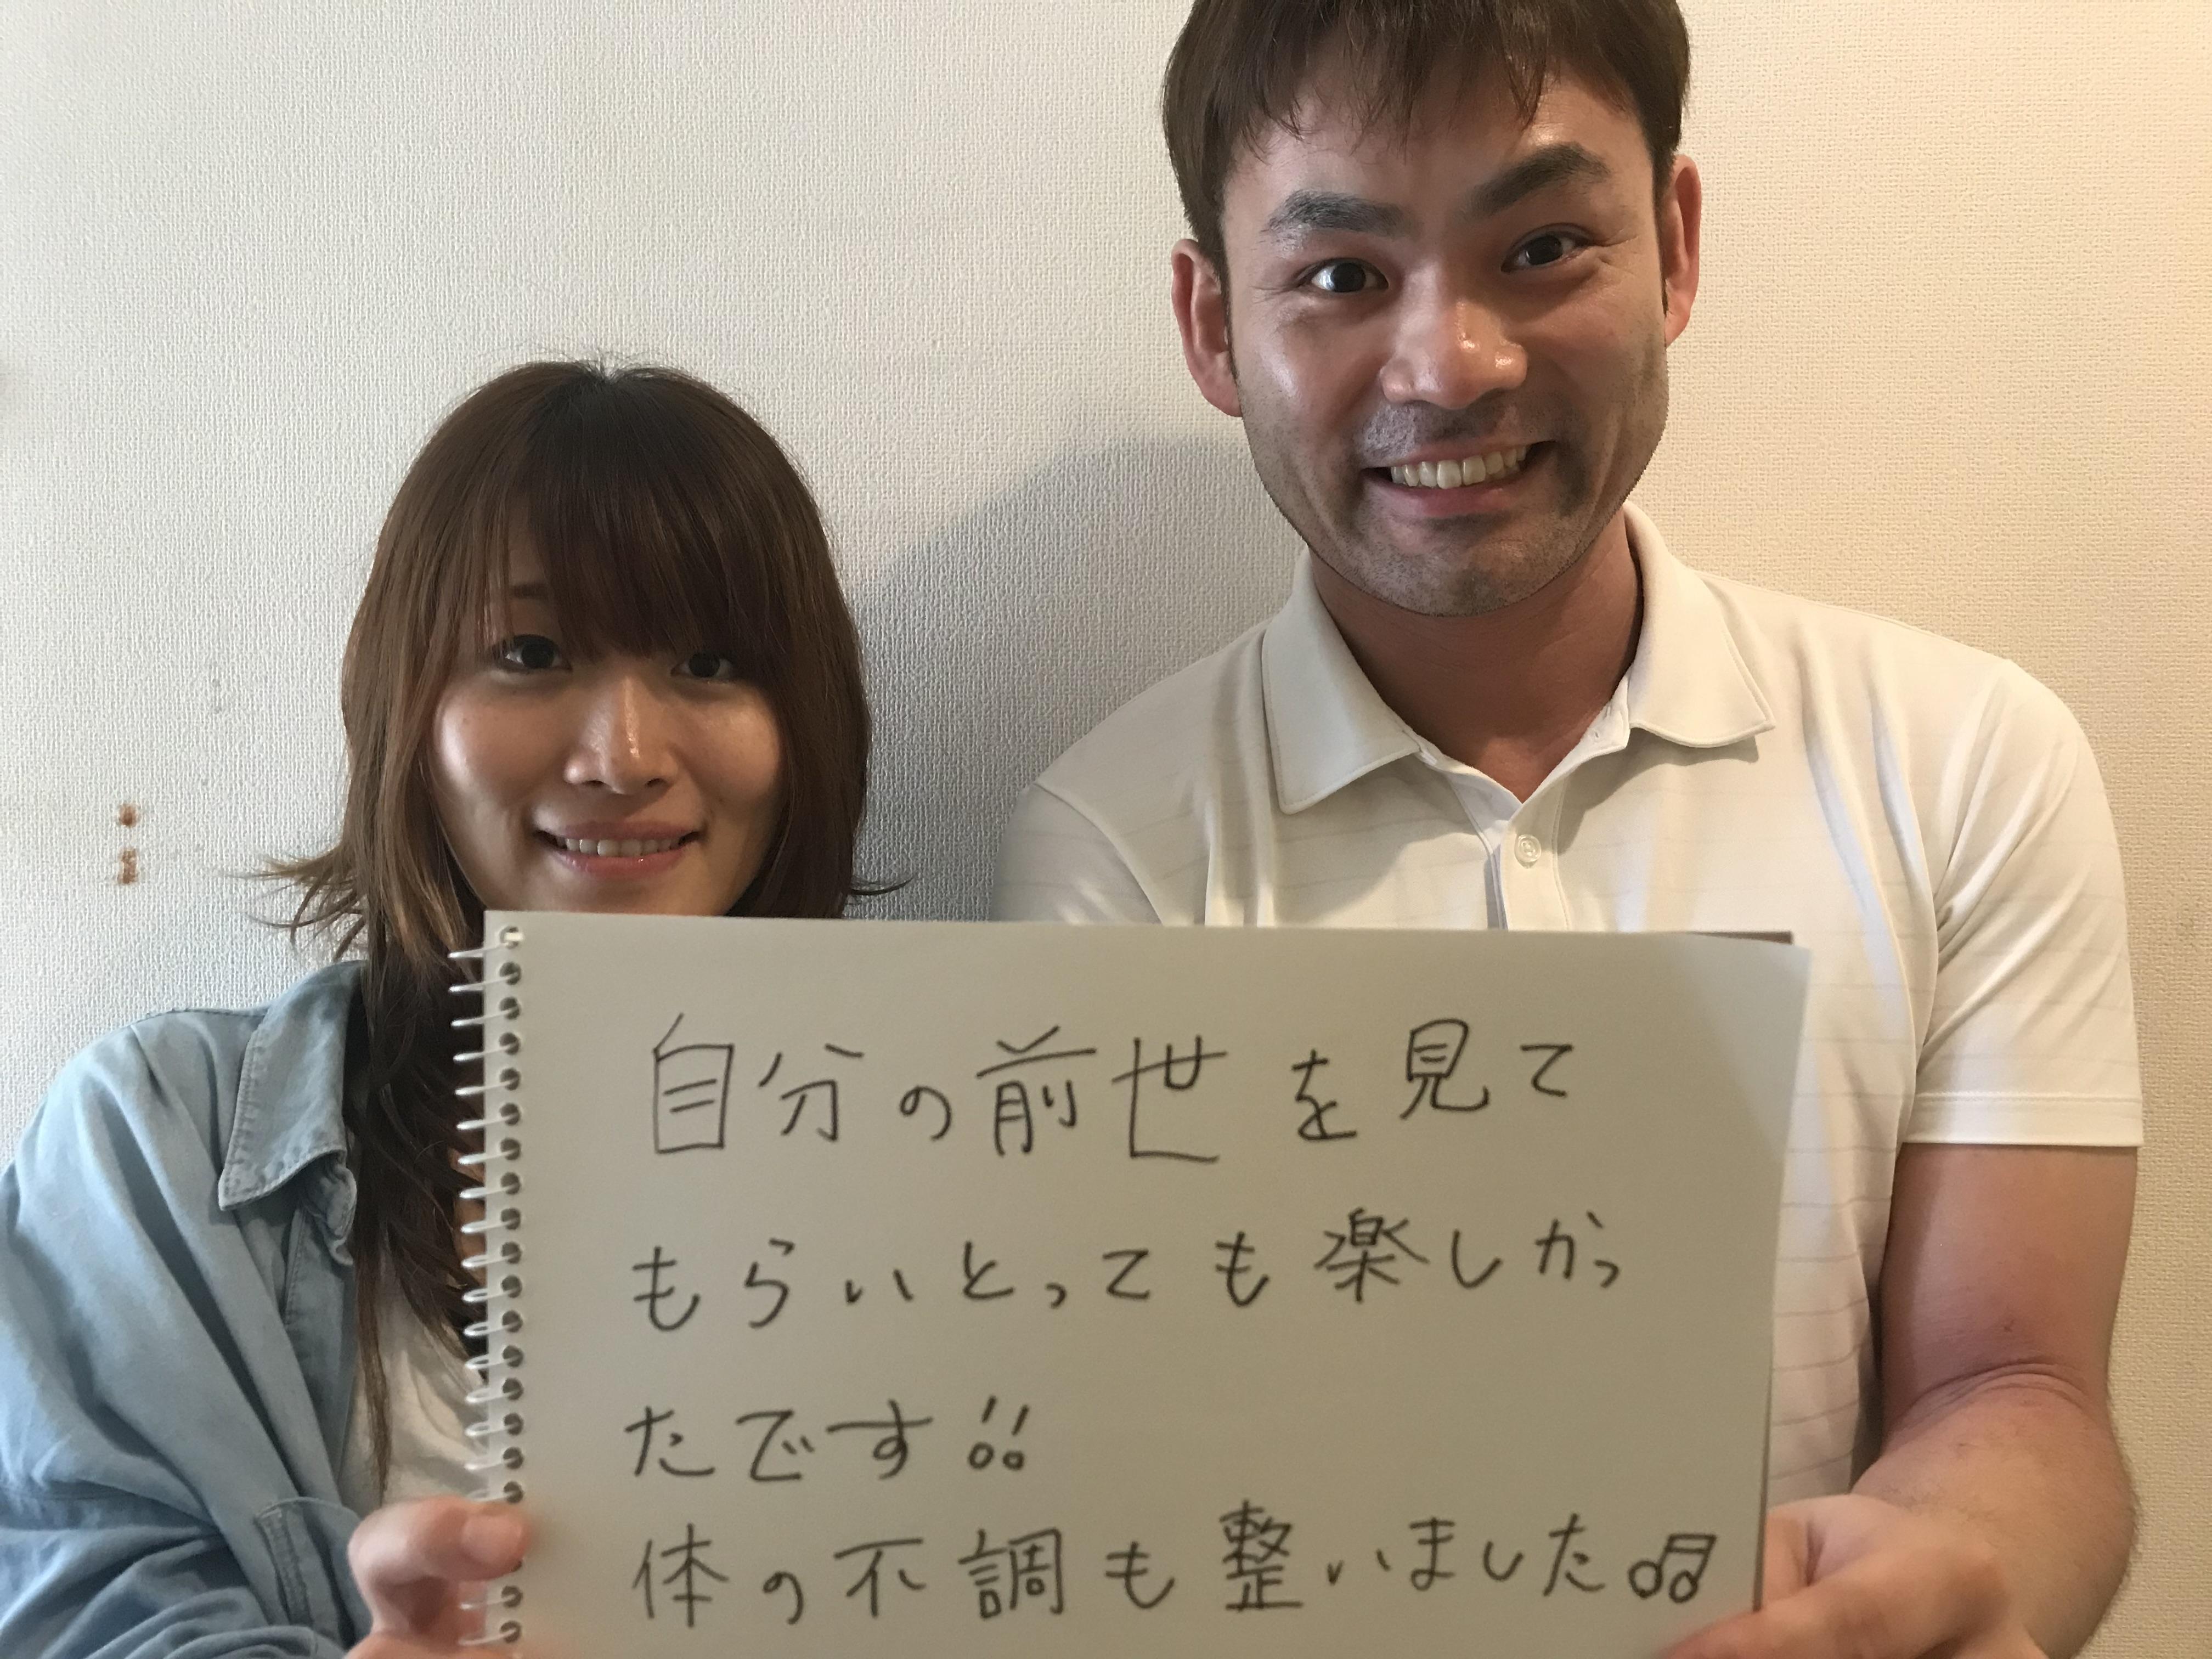 自分の前世を見て
もらいとっても楽しかっ
たです!!
体の不調も整いました♫